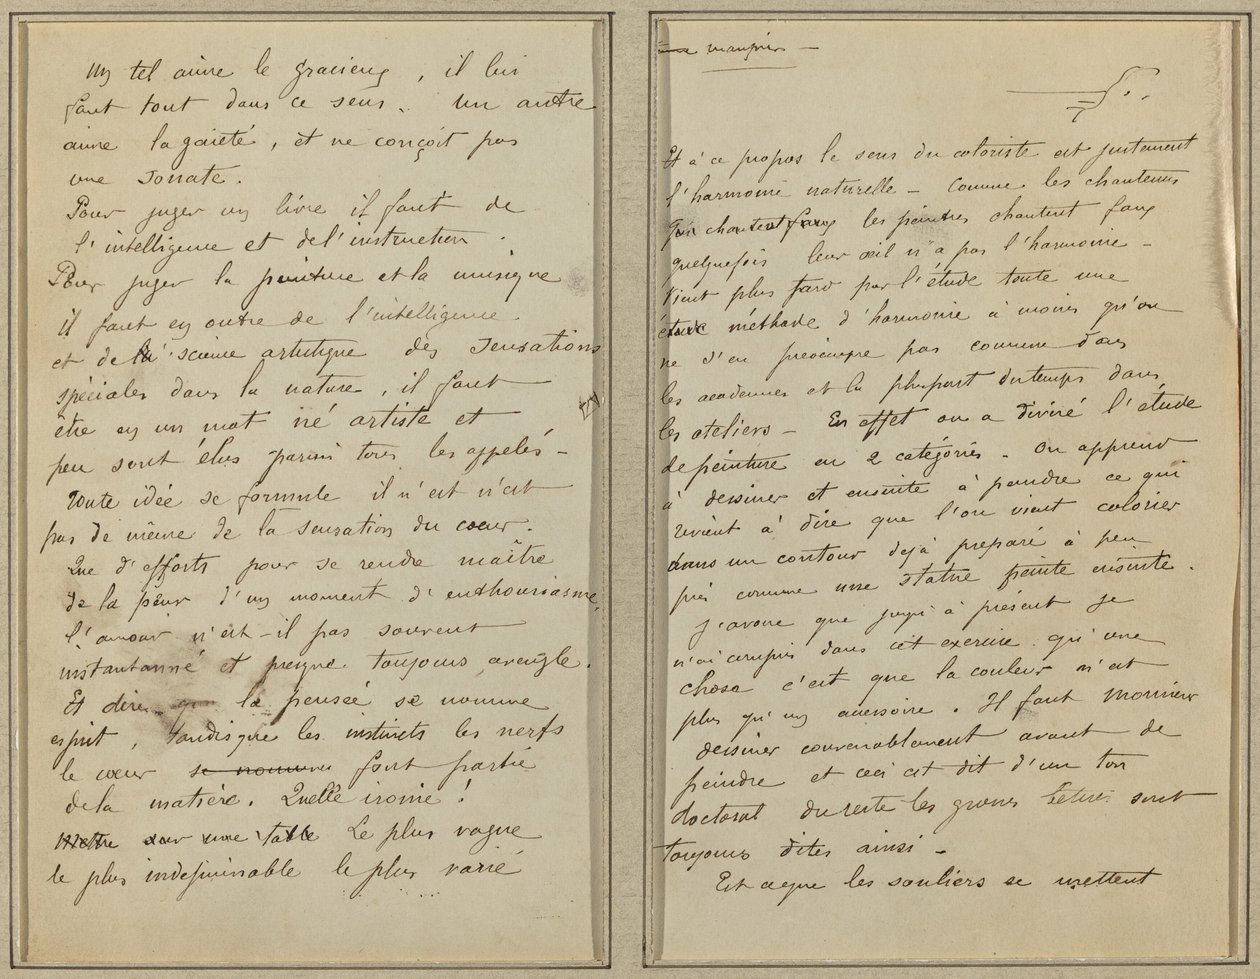 Un tel aime le gracieux, il lui
faut tout dans ce sens.. Un autre
aime la gaieté, et ne conçoit pas
une sonate.
Pour juger un livre il faut de
l'intelligence et de l'instruction.
Pour juger la peinture et la musique
il faut en outre de l'intelligence
et de la science artistique des sensations
spéciales dans la nature, il faut
être en un mot né artiste et
peu sont élus parmi tous les appelés -
Toute idée se formule il n'est n'est
pas de même de la sensation du cœur.
Que d'efforts pour se rendre maître
de la peur d'un moment d'enthousiasme,
l'amour n'est-il pas souvent
instantanné et presque toujours aveugle.
Et dire que la pensée se nomme
esprit, tandisque les instincts les nerfs
le cœur se nomme font partie
de la matière. Quelle ironie!
Mettre sur une table Le plus vague
le plus indefinissable le plus varié
Et à ce propos le sens du coloriste est justement
l'harmonie naturelle - Comme les chanteurs
Qui chantent faux les peintres chantent faux
quelquefois leur œil n'a pas l'harmonie -
Vient plus tard par l'étude toute une
étude méthode d'harmonie à moins qu'on
ne s'en préoccupe pas comme dans
les académies et la plupart du temps dans
les ateliers - En effet on a divisé l'étude
de peinture en 2 catégories - On apprend
à dessiner et ensuite à peindre ce qui
revient à dire que l'on vient colorier
dans un contour déjà préparé à peu
près comme une statue peinte ensuite.
J'avoue que jusqu'à présent je
n'ai compris dans cet exercice qu'une
chose c'est que la couleur n'est
plus qu'un accessoire. Il faut Monsieur
dessiner convenablement avant de
peindre et ceci est dit d'un ton
doctoral du reste les grosses bêtises sont
toujours dites ainsi -
Est ce que les souliers se mettent